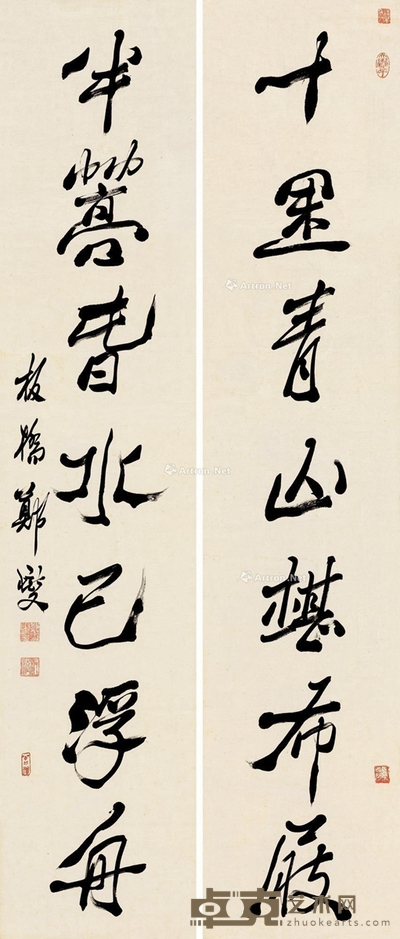 十里青山堪布屐
半篙春水已浮舟
板橋鄭燮
Artron.Net
Artron.Net
Artron.Net
卓克艺术网
zhuokearts.com